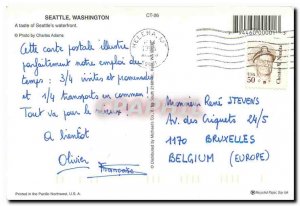 SEATTLE, WASHINGTON
CT-86
A taste of Seattle's waterfront.
© Photo by Charles Adams
HELENA,
Cette carte postale illustre
parfaitement notre emploi du
temps : 3/4 visites et promenades
et 1/4 transports en commun.
Tout va pour le mieux.
A bientôt
Olivier
Françoise
Monsieur René STEVENS
Av. des Criquets 24/5
1170 BRUXELLES
BELGIUM (EUROPE)
50
Printed in the Pacific Northwest, U.S.A.
Recycled Paper